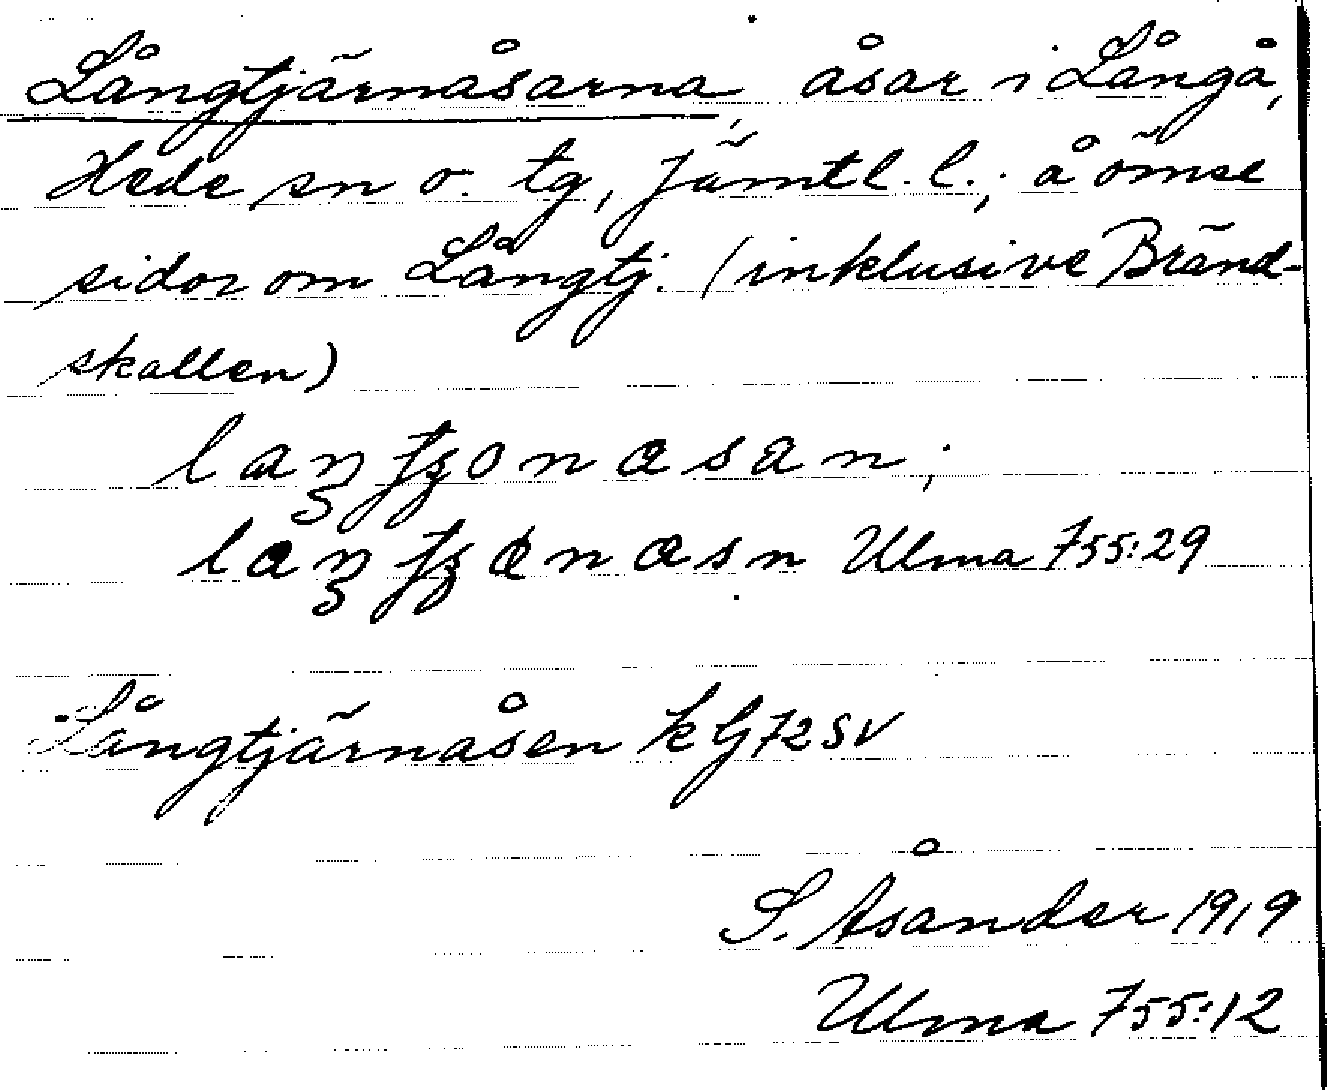 Långtjärnåsarna, åsar i Långå,
Hede sn o. tg, Jämtl. l., å ömse
sidor om Långtj. (inklusive Bränd-
skallen)
Ulma 755:29
Långtjärnåsen k Gj 72 SV
S. Åsander 1919
Ulma 755:12